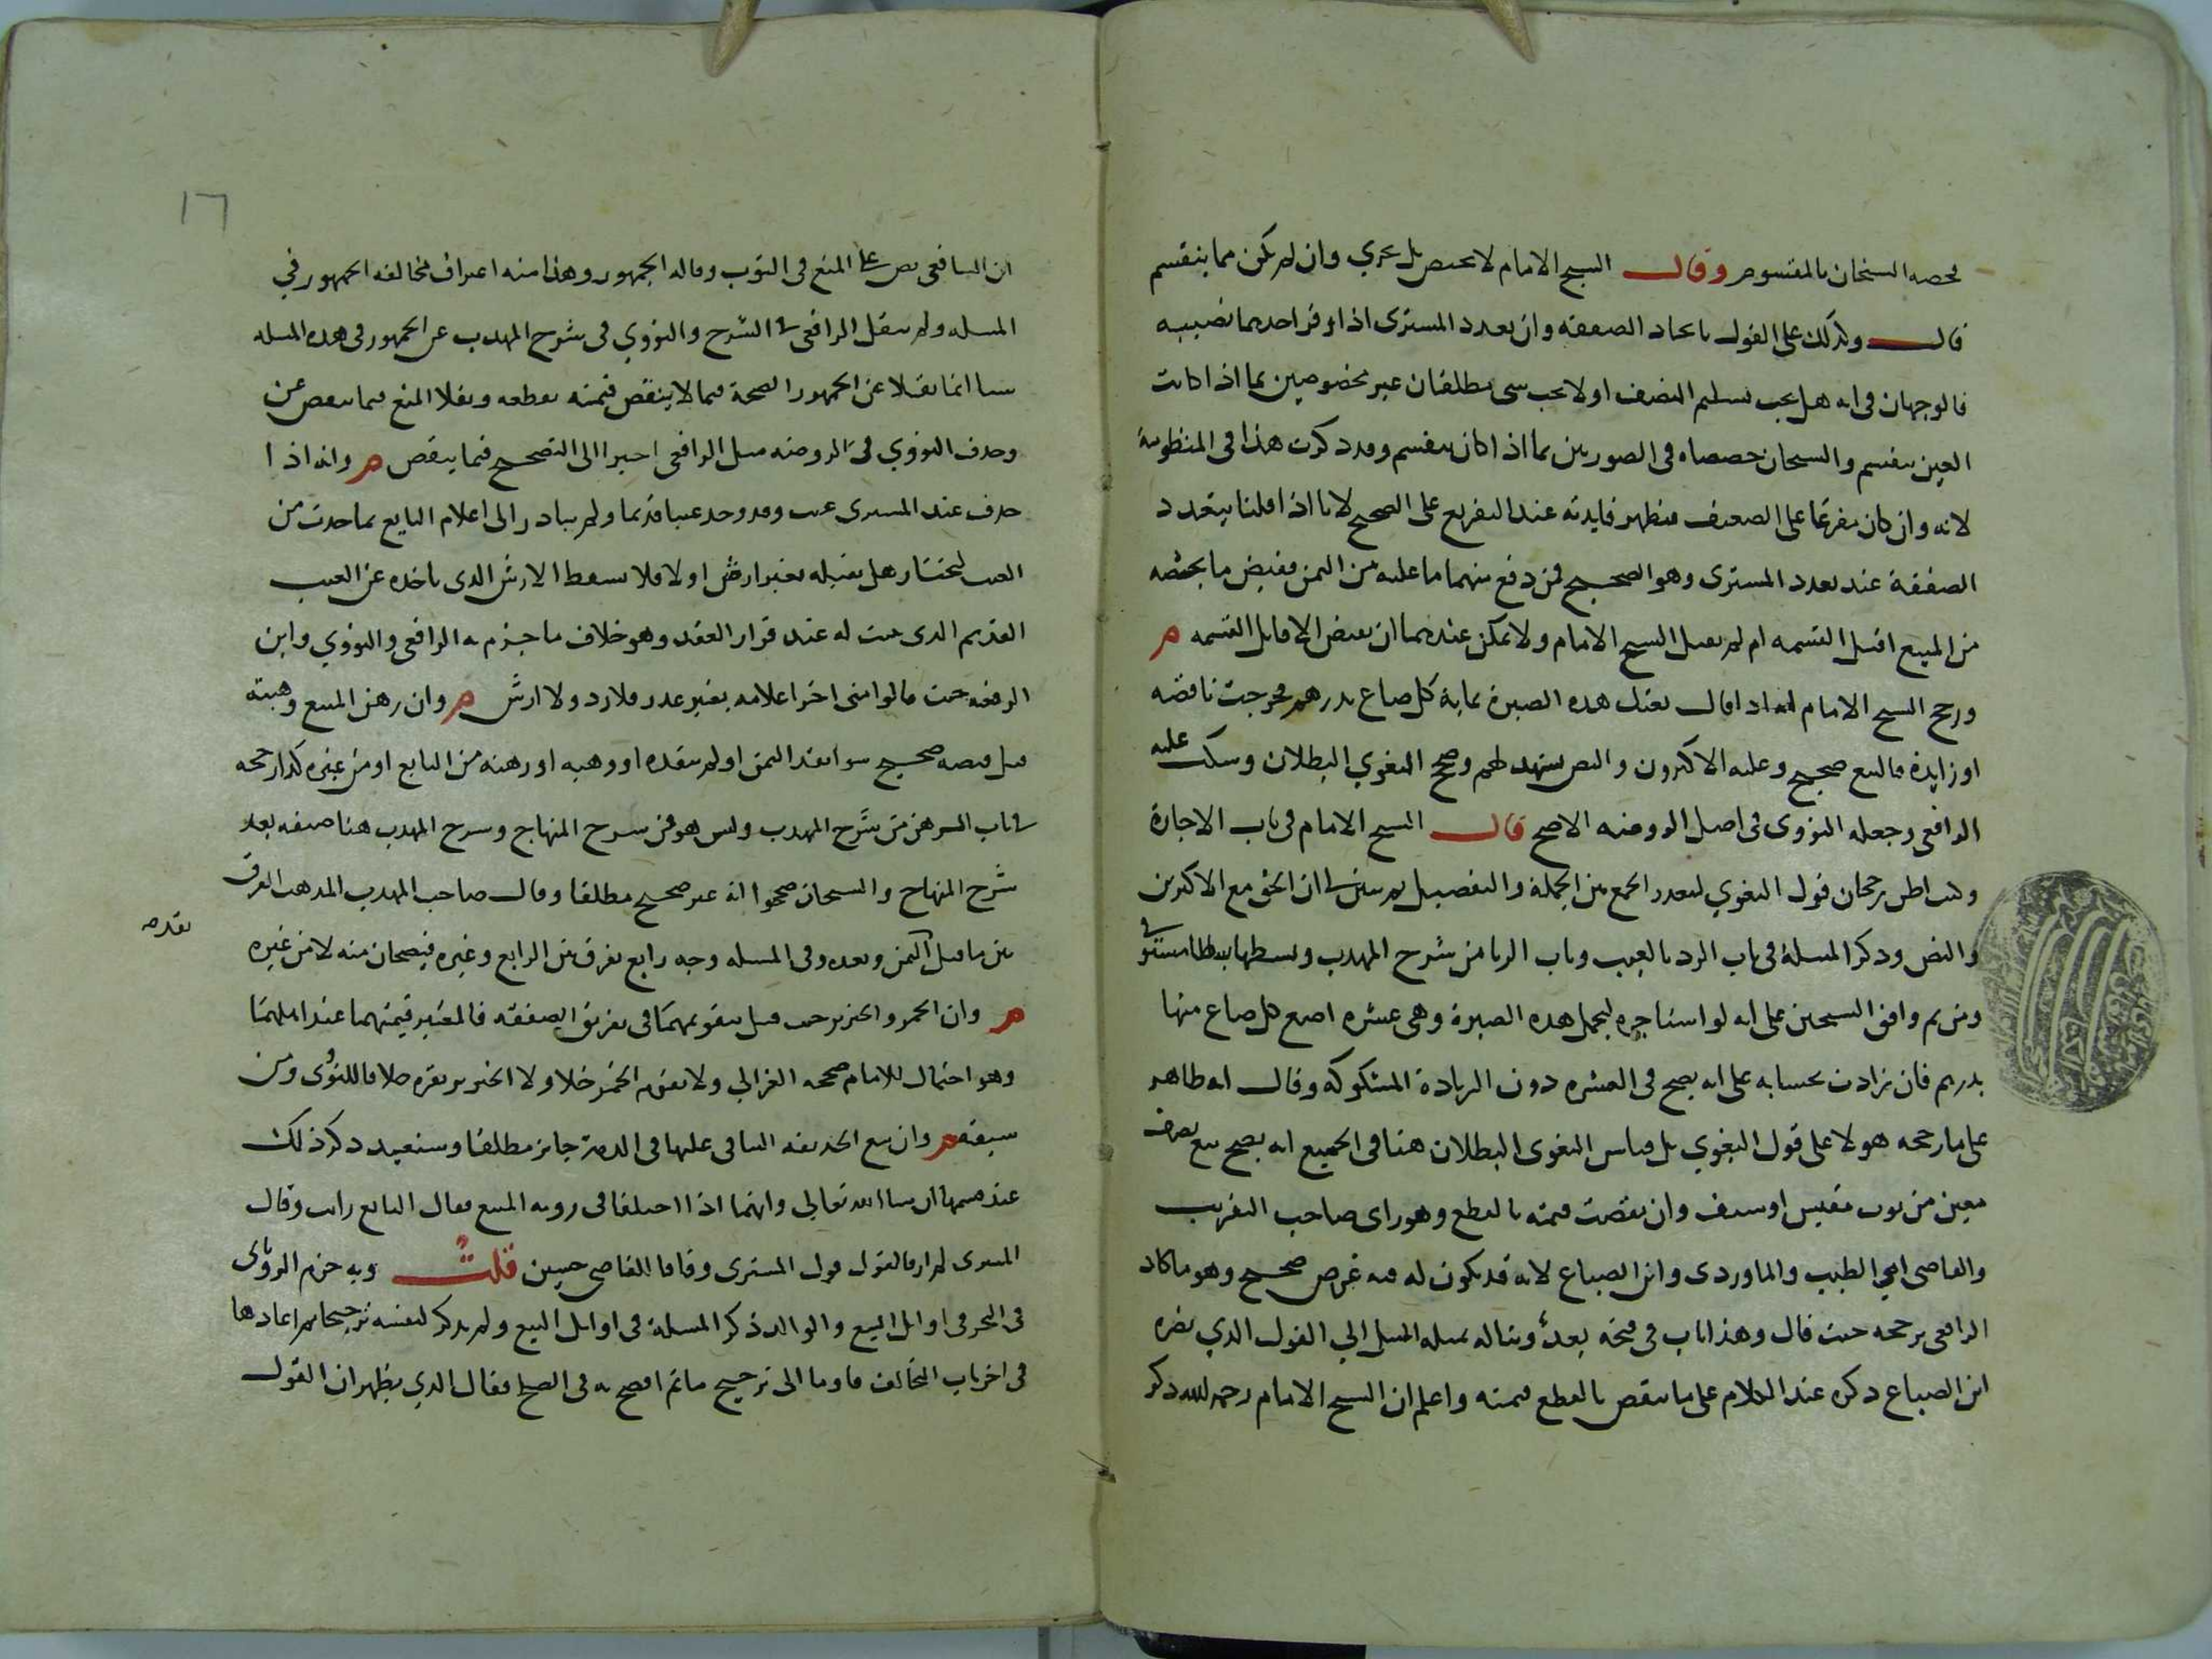 فخصه الشيخان بالمقسوم وقال الشيخ الامام لا يختص بل يجري وان لم يكن مما ينقسم
قال وكذلك على القول باتحاد الصفقة وان تعدد المشترى اذا وفر احدهما نصيبه
فالوجهان في انه هل يجب تسليم النصف او لا يجب شى مطلقان غير مخصوصين بما اذا كانت
العين تنقسم والشيخان خصصاه في الصورتين بما اذا كان ينقسم وقد ذكرت هذا في المنظومة
لانه وان كان مفرعا على الضعيف فتظهر فايدته عند التفريع على الصحيح لانا اذا قلنا بتعدد
الصفقة عند تعدد المشترى وهو الصحيح فمن دفع منهما ما عليه من الثمن فقبض ما يخصه
من المبيع اقبل القسمه ام لم يقبل الشيخ الامام ولا يمكن عندهما ان يقبض الا قابل القسمه م
ورجح الشيخ الامام انه اذا قال بعتك هذه الصبرة بماية كل صاع بدرهم فخرجت ناقصه
او زايدة فالبيع صحيح وعليه الاكثرون والنص يشهد لهم وصحح البغوي البطلان وسكت عليه
الرافعى وجعله النووى في اصل الروضه الاصح قال الشيخ الامام في باب الاجارة
وكنت اظن رجحان قول البغوي لتعذر الجمع بين الجملة والتفصيل ثم تبين لى ان الحق مع الاكثرين
والنص وذكر المسلة في باب الرد بالعيب وباب الربا من شرح المهذب وبسطها بسطا مستوفى
ومن ثم وافق الشيخين على انه لو استاجره ليحمل هذه الصبرة وهى عشره اصع كل صاع منها
بدرهم فان زادت بحسابه على انه يصح في العشره دون الزيادة المشكوكه وقال انه ظاهر
على ما رجحه هو لا على قول البغوي بل قياس البغوى البطلان هنا في الجميع انه يصح بيع نصف
معين من ثوب نفيس او سيف وان نقصت قيمته بالقطع وهو راى صاحب التقريب
والقاضى ابي الطيب والماوردى وابن الصباغ لانه قد يكون له فيه غرض صحيح وهو ما كاد
الرافعى يرجحه حيث قال وهذا باب في فتحه بعد وشاله بميله الميل الي القول الذي نصره
ابن الصباغ ذكره عند الكلام على ما ينقص بالقطع قيمته واعلم ان الشيخ الامام رحمه الله ذكر
١٦
ان الشافعى نص على المنع في الثوب وقاله الجمهور وهذا منه اعتراف بمخالفه الجمهور في
المسله ولم ينقل الرافعى في الشرح والنووي في شرح المهذب عن الجمهور في هذه المسله
شيا انما نقلا عن الجمهور الصحة فيما لا ينقص قيمته بقطعه ونقلا المنع فيما ينقص عن
وحذف النووي في الروضه ميل الرافعى اخيرا الى التصحيح فيما ينقص م وانه اذا
حدث عند المشترى عيب وقد وجد عيبا قديما ولم يبادر الى اعلام البايع بما حدث من
العيب ليختار هل يقبله بغير ارش او لا فلا يسقط الارش الذى ياخذه عن العيب
القديم الذى ثبت له عند قرار العقد وهو خلاف ما جزم به الرافعى والنووي وابن
الرفعه حيث قالوا متى اخر اعلامه بغير عذر فلا رد ولا ارش م وان رهن المبيع وهبته
قبل قبضه صحيح سوا نقد الثمن او لم ينقده او وهبه او رهنه من البايع او من غيره كذا رجحه
في باب الرهن من شرح المهذب وليس هو من شرح المنهاج وشرح المهذب هنا صنفه بعد
شرح المنهاج والشيخان صححوا انه غير صحيح مطلقا وقال صاحب المهذب المذهب الفرق
بين ما قبل الثمن وبعده وفى المسله وجه رابع يفرق بين البايع وغيره فيصحان منه لا من غيره
نقده
م وان الخمر والخنزير حيث قيل بتقويمهما في تفريق الصفقه فالمعتبر قيمتهما عند اهلهما
وهو احتمال للامام صححه الغزالي ولا نقوم الخمر خلا ولا الخنزير بقره خلافا للنووى ومن
سبقه م وان بيع الحديقه المساقى عليها في المدة جايز مطلقا وسنعيد ذكر ذلك
عند قسمها ان شا الله تعالى وانهما اذا اختلفا في رويه المبيع فقال البايع رايت وقال
المشترى لم ار فالقول قول المشترى وفاقا للقاضى حسين قلت وبه جزم الرويانى
في البحر في اوايل البيع والوالد ذكر المسلة في اوايل البيع ولم يذكر لنفسه ترجيحا ثم اعادها
في اخر باب التحالف فاوما الى ترجيح ما ثم افصح به في الصلح فقال الذي يظهر ان القول